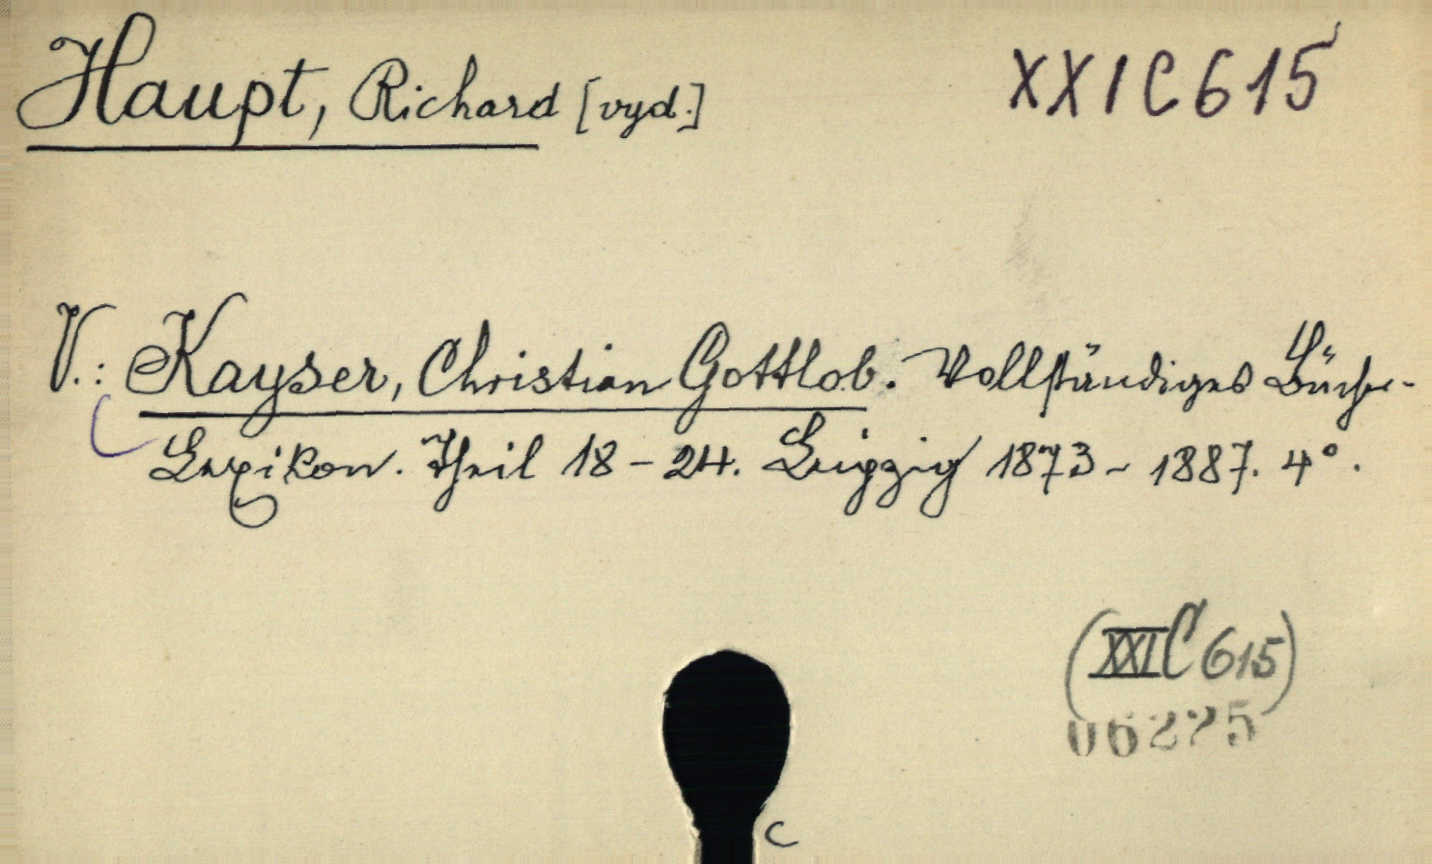 Haupt, Richard [vyd.] XXI C 615
V.: Kayser, Christian Gottlob. Vollständiges Bücher-
Lexikon. Theil 18 - 24. Leipzig 1873 - 1887. 4°.
(XXI C 615)
06225
c